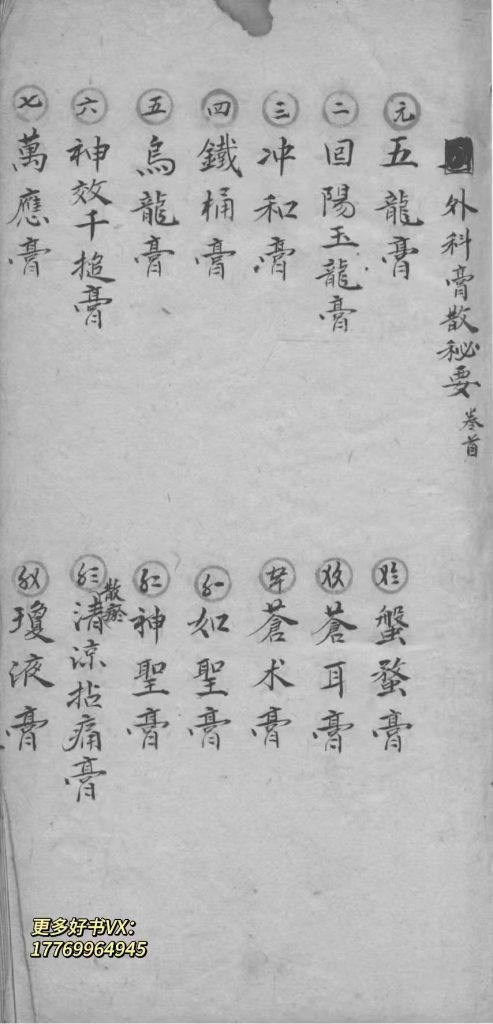 外科膏散秘要 卷首
元 五龍膏
二 回陽玉龍膏
三 冲和膏
四 鐵桶膏
五 烏龍膏
六 神效千搥膏
七 萬應膏
蟹蝥膏
蒼耳膏
蒼术膏
如聖膏
神聖膏
清涼拈痛膏
瓊液膏
更多好书VX:
17769964945